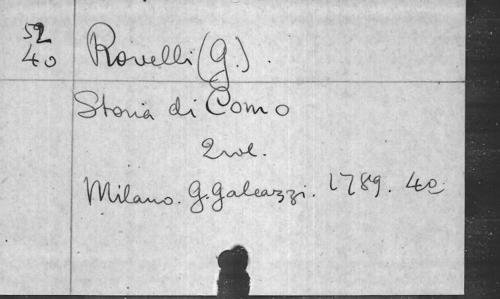 52
40
Rovelli (G.).
Storia di Como
2 vol.
Milano. G. Galeazzi. 1789. 4o